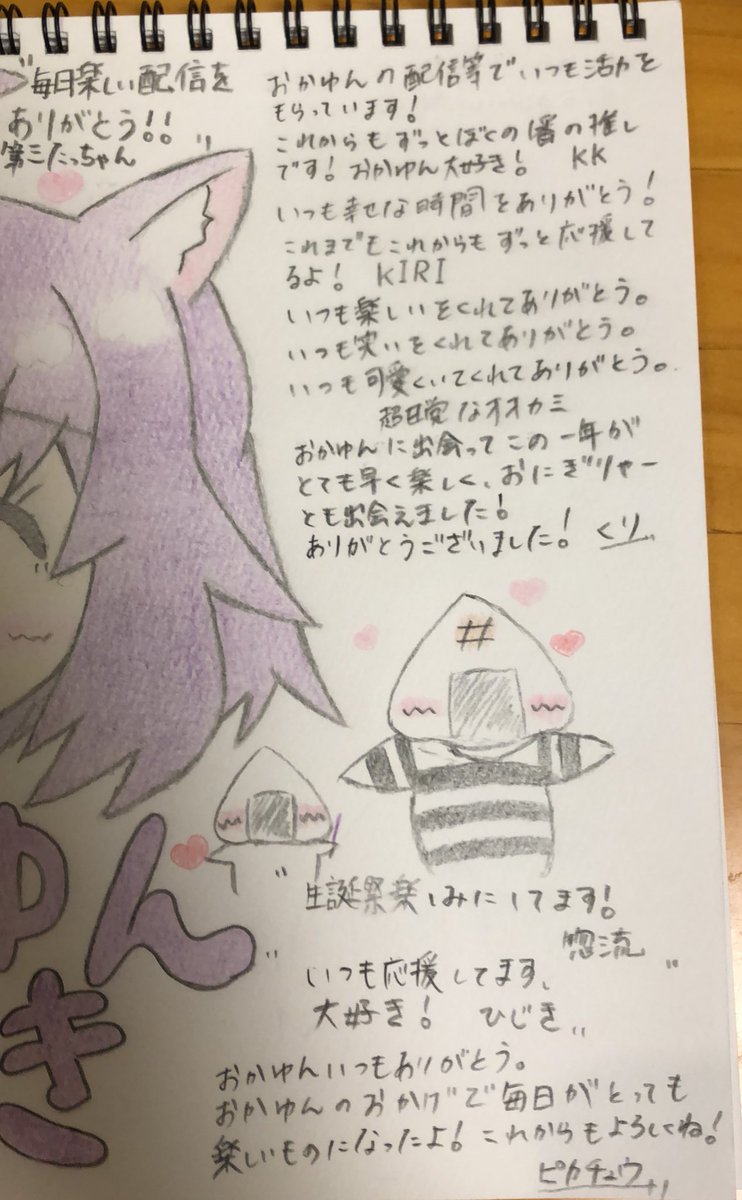 毎日楽しい配信を
ありがとう!!
第三たっちゃん
おかゆんの配信等でいつも活力を
もらっています!
これからもずっとぼくの1番の推し
です!おかゆん大好き! KK
いつも幸せな時間をありがとう!
これまでもこれからもずっと応援して
るよ! KIRI
いつも楽しいをくれてありがとう。
いつも笑いをくれてありがとう。
いつも可愛くいてくれてありがとう。
超日覚なオオカミ
おかゆんに出会ってこの一年が
とても早く楽しく、おにぎりゃー
とも出会えました!
ありがとうございました! くり
生誕祭楽しみにしてます!
惣流
いつも応援してます、
大好き! ひじき
ゆん
き
おかゆんいつもありがとう。
おかゆんのおかげで毎日がとっても
楽しいものになったよ!これからもよろしくね!
ピカチュウ